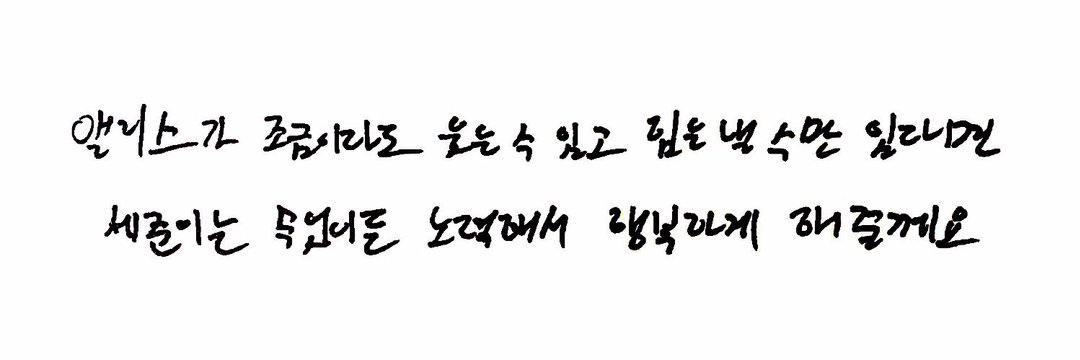 앨리스가 조금이라도 웃는 수 있고 힘을 낼 수만 있다면
세준이는 수없이든 노력해서 행복하게 해 줄께요